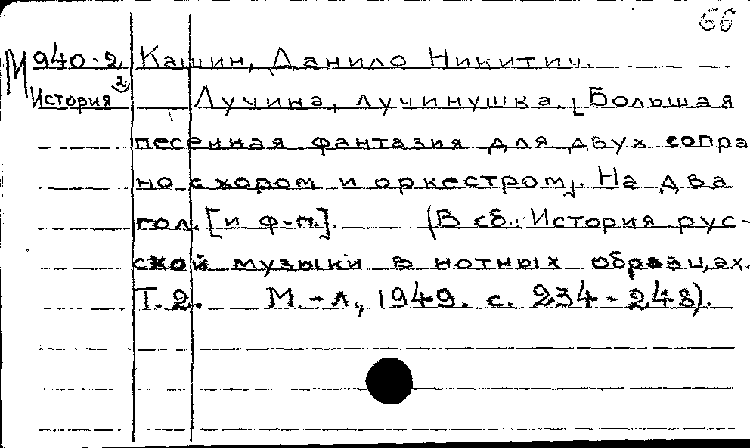 66
М 940-2 Кашин, Данило Никитич.
История 2 Лучина, лучинушка. [Большая
песенная фантазия для двух сопра
но с хором и оркестром]. На два
гол. [и ф-п.]. (В сб.: История рус-
ской музыки в нотных образцах.
Т. 2. М.-Л., 1949. с. 234-248).